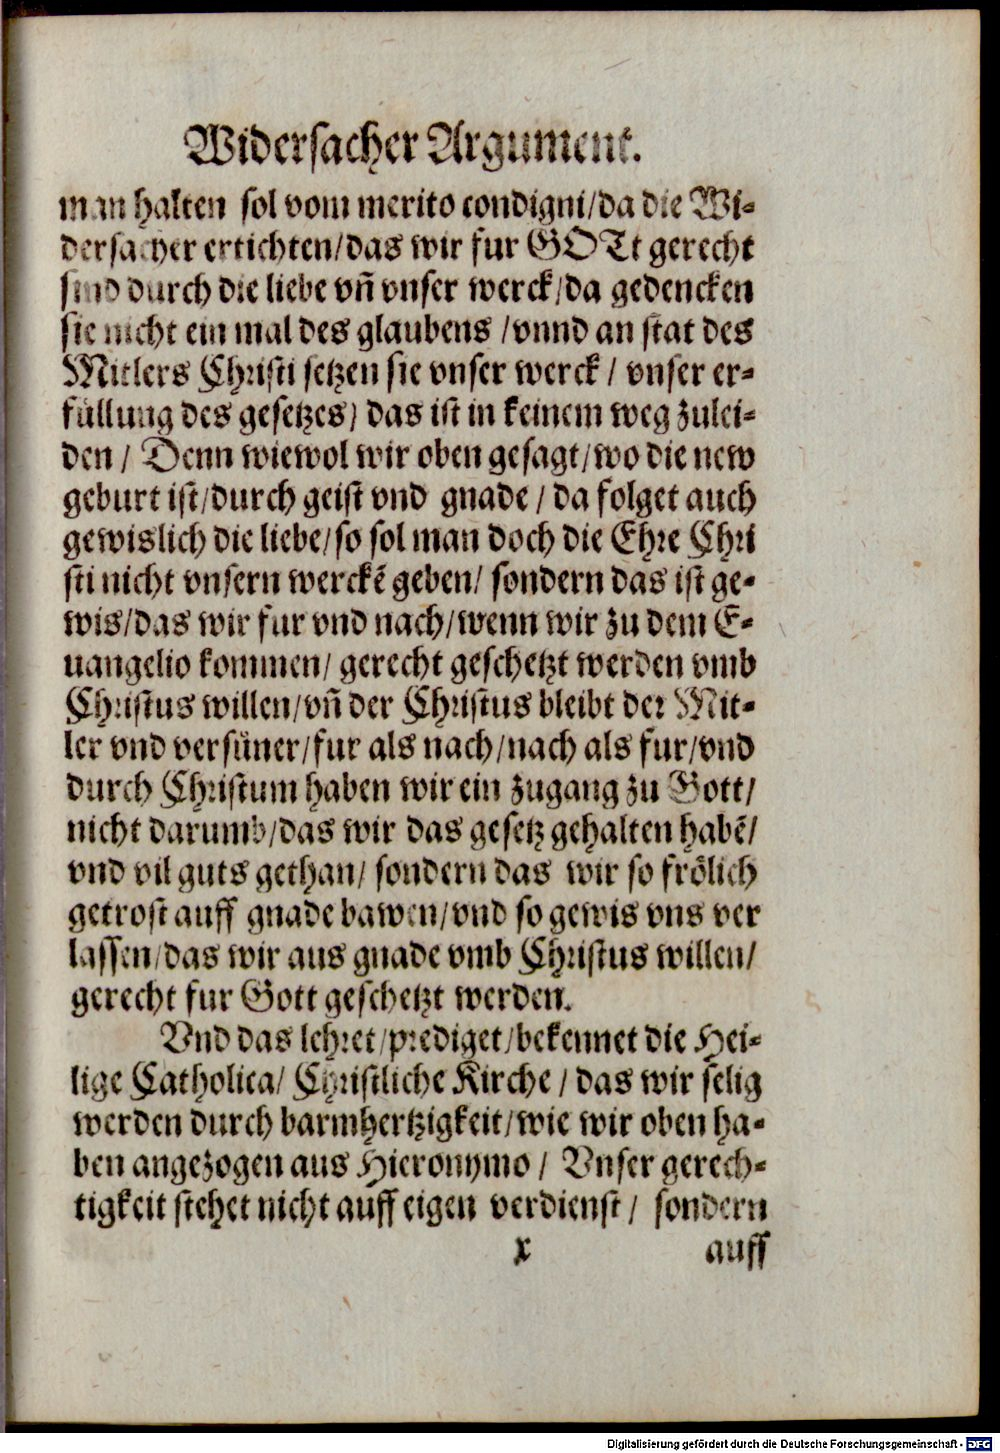 Widersacher Argument.
man halten sol vom merito condigni/da die Wi-
dersacher ertichten/das wir fur GOTt gerecht
sind durch die liebe vñ vnser werck/da gedencken
sie nicht ein mal des glaubens /vnnd an stat des
Mitlers Christi setzen sie vnser werck / vnser er-
füllung des gesetzes/ das ist in keinem weg zulei-
den / Denn wiewol wir oben gesagt/wo die new
geburt ist/durch geist vnd gnade / da folget auch
gewislich die liebe/so sol man doch die Ehre Chri
sti nicht vnsern werckẽ geben/ sondern das ist ge-
wis/das wir fur vnd nach/wenn wir zu dem E-
uangelio kommen/ gerecht geschetzt werden vmb
Christus willen/vñ der Christus bleibt der Mit-
ler vnd versüner/fur als nach/nach als fur/vnd
durch Christum haben wir ein zugang zu Gott/
nicht darumb/das wir das gesetz gehalten habẽ/
vnd vil guts gethan/ sondern das wir so frölich
getrost auff gnade bawen/vnd so gewis vns ver
lassen/das wir aus gnade vmb Christus willen/
gerecht fur Gott geschetzt werden.
Vnd das lehret/prediget/bekennet die Hei-
lige Catholica/ Christliche Kirche / das wir selig
werden durch barmhertzigkeit/wie wir oben ha-
ben angezogen aus Hieronymo / Vnser gerech-
tigkeit stehet nicht auff eigen verdienst / sondern
x auff
Digitalisierung gefördert durch die Deutsche Forschungsgemeinschaft - DFG